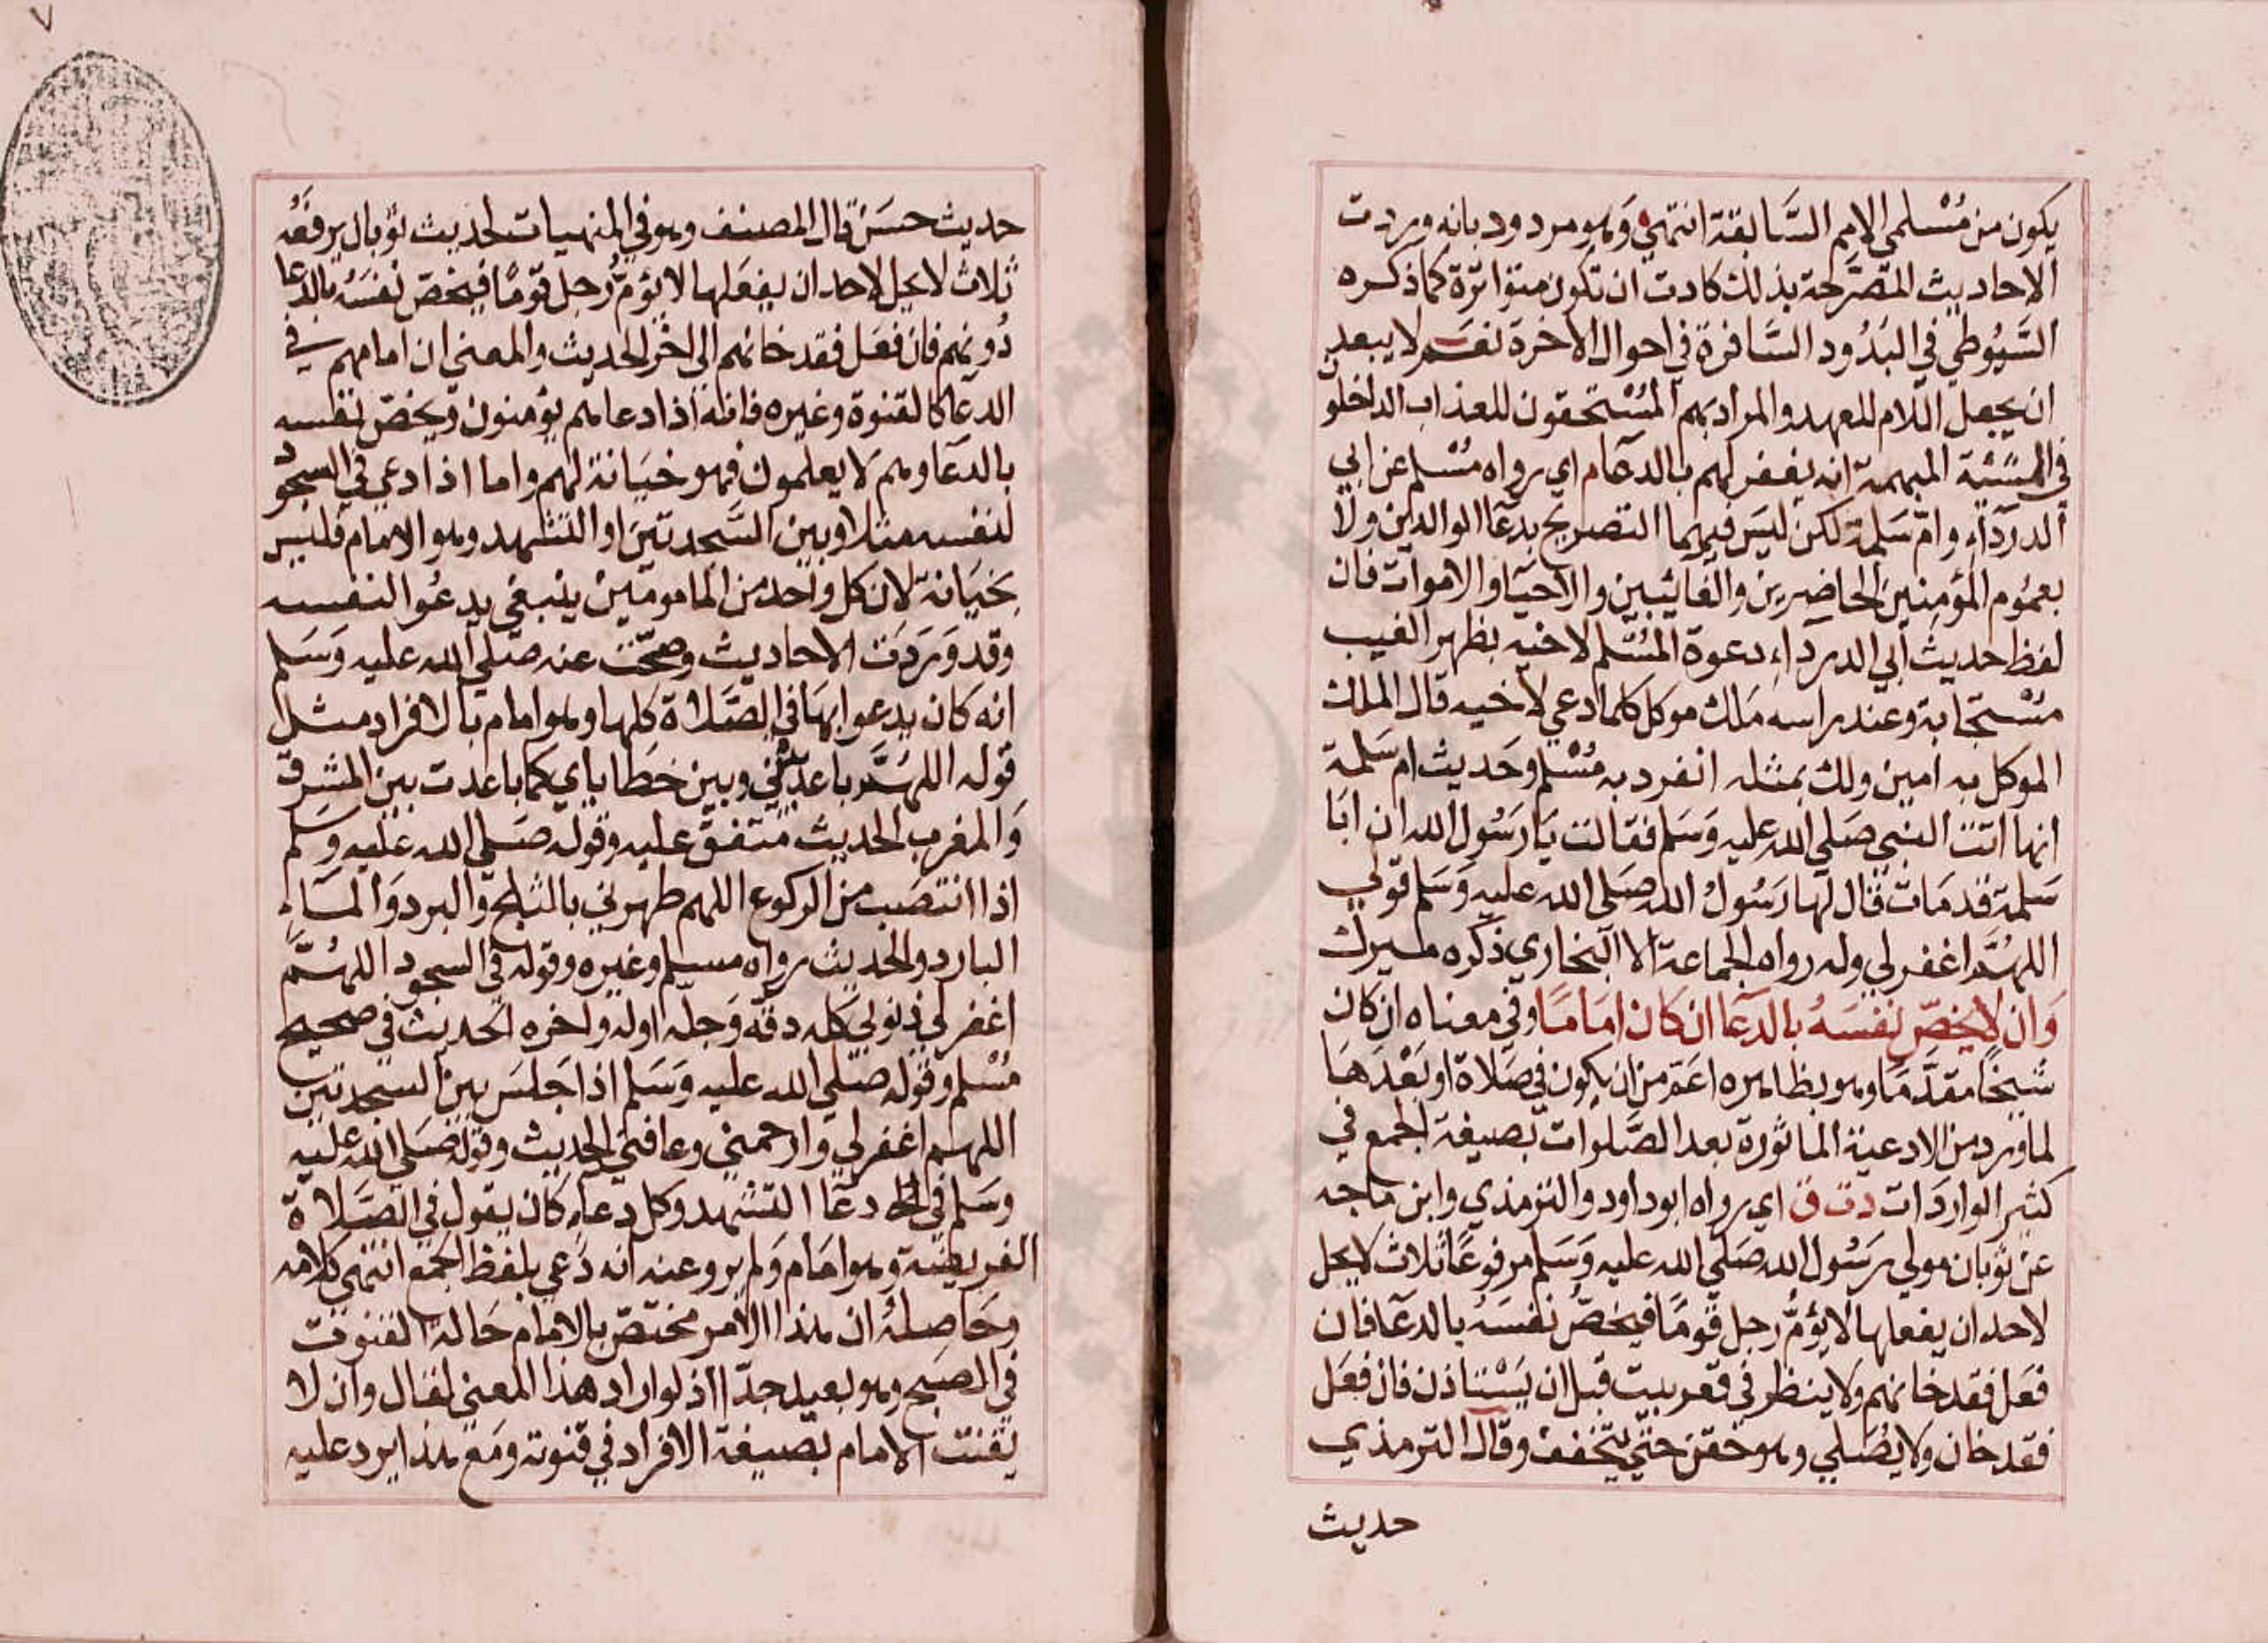 يكون من مُسْلمي الامم السَّابقة انتهى وَهو مردود بانه وردت
الاحاديث المصَرّحة بذلك كادت ان تكون متواترة كما ذكره
السَّيُوطي في البَدُور السَّافرة في احوال الاخرة نعَم لا يبعد
ان يجعل اللام للعهد والمراد بهم المُسْتحقون للعذاب الداخلون
في المشيّئة المبهمة انه يغفر لهم بالدعآ م اي رواه مُسْلم عن ابي
الدردآء وامّ سَلمة لكن ليسَ فيهما التصريح بدعآ الوالدين ولا
بعمُوم المؤمِنين الحَاضِرين والغائبين والاحيَآ والاموات فان
لفظ حديث ابي الدرداء دعوة المُسْلم لاخيه بظهر الغيب
مُسْتجَابة وعند راسه مَلك موكل كلما دعي لاخيه قال الملك
الموكل به امين ولك بمثله انفرد به مُسْلم وحَديث ام سَلمة
انها اتت النبي صَلي الله عليه وَسَلم فقالت يَا رَسُول الله ان ابَا
سَلمة قد مَات قال لها رَسُولُ الله صَلى الله عليه وَسَلم قولي
اللهُمَّ اغفر لي وله رواه الجماعة الا البخاري ذكره ميرك
وَان لا يخصّ نفسَهُ بالدعآ ان كَان امَامًا وفي معناه ان كان
شيخًا مقدَّمًا وهو بظاهره اعَمّ من ان يكون في صَلاة او بَعْدَهَا
لما ورد من الادعية الماثورة بعد الصَّلوات بصيغة الجمع في
كثير الواردَات د ت ق اي رواه ابو داود والترمذي وابن ماجه
عن ثوبان مولي رسُول الله صَلي الله عليه وَسَلم مرفوعًا ثلاث لا يحل
لاحد ان يفعلها لا يؤمُّ رجل قومًا فيخصُّ نفسَهُ بالدعآ فان
فعَل فقد خانهم ولا ينظر في قعر بيت قبل ان يَسْتاذن فان فعَل
فقد خان ولا يُصَلي وهو حَقن حتّي يتخفف وقال الترمذي
حديث
حديث حسَن قال المصنف وهو في المنهيات لحديث ثوبان يرفعَهُ
ثلاث لا يحل لاحد ان يفعَلها لا يؤمُّ رَجل قومًا فيخصّ نفسَهُ بالدعا
دُونهم فان فعَل فقد خانهم الى اخر الحديث والمعنى ان امامهم في
الدعآ كالقنوة وغيره فانه اذا دعا هم يؤمنون ويخصّ نفسه
بالدعآ وهم لا يعلمون فهو خيَانة لهم واما اذا دعي في السجود
لنفسه مثلا وبين السَّجدتين او التشهد وهو الامام فليس
بخيَانة لان كل واحد من المامومين ينبغي يدعُوا لنفسه
وقد وَرَدَت الاحاديث وصحّت عنه صَلي الله عليه وَسَلم
انه كان يدعوا بهَا في الصَّلاة كلها وهو امام بالافراد مثل
قوله اللهُمَّ باعد بيني وبين خطاياي كما باعدت بين المشرق
وَالمغرب الحديث متفق عليه وقوله صَلي الله عليه وَسَلم
اذا انتصَب من الركوع اللهم طهرني بالثلج والبرد وَالمَاء
البارد والحديث رواه مسلم وغيره وقوله في السجود اللهُمَّ
اغفر لي ذنوبي كله دقه وَجله اوله واخره الحديث في صحيح
مُسْلم وقوله صَلي الله عليه وَسَلم اذا جَلسَ بين السجدتين
اللهم اغفر لي وارحمني وعافني الحديث وقوله صَلي الله عليه
وسَلم في دعَا التشهد وكل دعآء كان يقول في الصَّلاة
الفريضة وهو امَام وَلم يرو عنه انه دَعي بلفظ الجمع انتهى كلامه
وحَاصِلهُ ان هذا الامر مختصّ بالامام حَالة القنوت
في الصبح وهو بعيد جدّا اذ لو اراد هذا المعنى لقال وان لا
يقنت الامام بصيغة الافراد في قنوته ومَع هذا يرد عليه